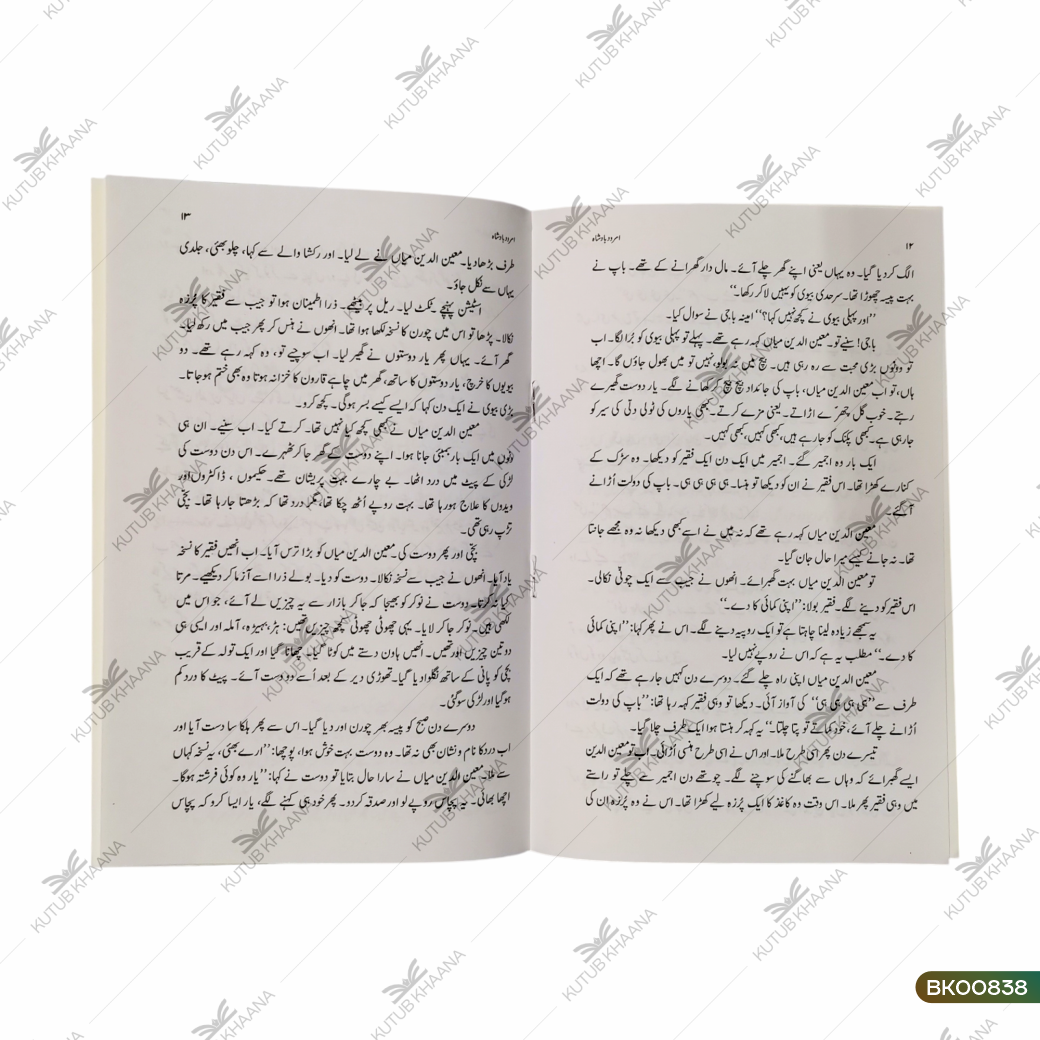 ۱۲
امرود بادشاہ
الگ کر دیا گیا۔ وہ یہاں یعنی اپنے گھر چلے آئے۔ مال دار گھرانے کے تھے۔ باپ نے
بہت پیسہ چھوڑا تھا۔ سرحدی بیوی کو یہیں لا کر رکھا۔‘‘
’’اور پہلی بیوی نے کچھ نہیں کہا؟‘‘ امینہ باجی نے سوال کیا۔
باجی! سنیے تو۔ معین الدین میاں کہہ رہے تھے۔ پہلے تو پہلی بیوی کو بُرا لگا۔ اب
تو دونوں بڑی محبت سے رہ رہی ہیں۔ بیچ میں نہ بولو، نہیں تو میں بھول جاؤں گا۔ اچھا
ہاں، تو اب معین الدین میاں، باپ کی جائداد بیچ بیچ کر کھانے لگے۔ یار دوست گھیرے
رہتے۔ خوب گل چھرّے اڑاتے۔ یعنی مزے کرتے۔ کبھی یاروں کی ٹولی دلّی کی سیر کو
جا رہی ہے۔ کبھی پکنک کو جا رہے ہیں، کبھی کہیں، کبھی کہیں۔
ایک بار وہ اجمیر گئے۔ اجمیر میں ایک دن ایک فقیر کو دیکھا۔ وہ سڑک کے
کنارے کھڑا تھا۔ اس فقیر نے ان کو دیکھا تو ہنسا۔ ہی ہی ہی ہی۔ باپ کی دولت اُڑانے
آ گئے۔
معین الدین میاں کہہ رہے تھے کہ نہ میں نے اسے کبھی دیکھا نہ وہ مجھے جانتا
تھا۔ نہ جانے کیسے میرا حال جان گیا۔
تو معین الدین میاں بہت گھبرائے۔ انھوں نے جیب سے ایک چونّی نکالی۔
اس فقیر کو دینے لگے۔ فقیر بولا: ’’اپنی کمائی کا دے۔‘‘
یہ سمجھے زیادہ لینا چاہتا ہے تو ایک روپیہ دینے لگے۔ اس نے پھر کہا: ’’اپنی کمائی
کا دے۔‘‘ مطلب یہ ہے کہ اس نے روپے نہیں لیا۔
معین الدین میاں اپنی راہ چلے گئے۔ دوسرے دن کہیں جا رہے تھے کہ ایک
طرف سے ’’ہی ہی ہی ہی‘‘ کی آواز آئی۔ دیکھا تو وہی فقیر کہہ رہا تھا: ’’باپ کی دولت
اُڑانے چلے آئے، خود کماتے تو پتا چلتا۔‘‘ یہ کہہ کر ہنستا ہوا ایک طرف چلا گیا۔
تیسرے دن پھر اسی طرح ملا۔ اور اس نے اسی طرح ہنسی اُڑائی۔ اب تو معین الدین
ایسے گھبرائے کہ وہاں سے بھاگنے کی سوچنے لگے۔ چوتھے دن اجمیر سے چلے تو راستے
میں وہی فقیر پھر ملا۔ اس وقت وہ کاغذ کا ایک پُرزہ لیے کھڑا تھا۔ اس نے وہ پُرزہ اِن کی
۱۳
امرود بادشاہ
طرف بڑھا دیا۔ معین الدین میاں نے لے لیا۔ اور رکشا والے سے کہا، چلو بھئی، جلدی
یہاں سے نکل جاؤ۔
اسٹیشن پہنچے ٹکٹ لیا۔ ریل پر بیٹھے۔ ذرا اطمینان ہوا تو جیب سے فقیر کا پُرزہ
نکالا۔ پڑھا تو اس میں چورن کا نسخہ لکھا ہوا تھا۔ انھوں نے ہنس کر پھر جیب میں رکھ لیا۔
گھر آئے۔ یہاں پھر یار دوستوں نے گھیر لیا۔ اب سوچیے تو، وہ کہہ رہے تھے۔ دو
بیویوں کا خرچ، یار دوستوں کا ساتھ، گھر میں چاہے قارون کا خزانہ ہوتا وہ بھی ختم ہو جاتا۔
بڑی بیوی نے ایک دن کہا کہ ایسے کیسے بسر ہوگی۔ کچھ کرو۔
معین الدین میاں نے کبھی کچھ کیا نہیں تھا۔ کرتے کیا۔ اب سنیے۔ ان ہی
دنوں میں ایک بار بمبئی جانا ہوا۔ اپنے دوست کے گھر جا کر ٹھہرے۔ اس دن دوست کی
لڑکی کے پیٹ میں درد اٹھا۔ بے چارے بہت پریشان تھے۔ حکیموں، ڈاکٹروں اور
ویدوں کا علاج ہو رہا تھا۔ بہت روپے اُٹھ چکا تھا، مگر درد تھا کہ بڑھتا جا رہا تھا۔ بچّی
تڑپ رہی تھی۔
بچّی اور پھر دوست کی معین الدین میاں کو بڑا ترس آیا۔ اب انھیں فقیر کا نسخہ
یاد آیا۔ انھوں نے جیب سے نسخہ نکالا۔ دوست کو دیا۔ بولے ذرا اسے آزما کر دیکھیے۔ مرتا
کیا نہ کرتا۔ دوست نے نوکر کو بھیجا کہ جا کر بازار سے یہ چیزیں لے آئے، جو اس میں
لکھی ہیں۔ نوکر جا کر لایا۔ یہی چھوٹی چھوٹی کچھ چیزیں تھیں: ہڑ، بہیڑہ، آملہ اور ایسی ہی
دو تین چیزیں اور تھیں۔ انھیں ہاون دستے میں کوٹا گیا۔ چھانا گیا اور ایک تولہ کے قریب
بچّی کو پانی کے ساتھ نگلوا دیا گیا۔ تھوڑی دیر کے بعد اُسے دو دست آئے۔ پیٹ کا درد کم
ہو گیا اور لڑکی سو گئی۔
دوسرے دن صبح کو پیسہ بھر چورن اور دیا گیا۔ اس سے پھر ہلکا سا دست آیا اور
اب درد کا نام و نشان بھی نہ تھا۔ وہ دوست بہت خوش ہوا، پوچھا: ’’ارے بھئی، یہ نسخہ کہاں
سے ملا۔ معین الدین میاں نے سارا حال بتایا تو دوست نے کہا: ’’یار وہ کوئی فرشتہ ہوگا۔
اچھا بھائی۔ یہ پچاس روپے لو اور صدقہ کر دو۔ پھر خود ہی کہنے لگے، یار ایسا کرو کہ پچاس
KUTUB KHAANA
BK00838